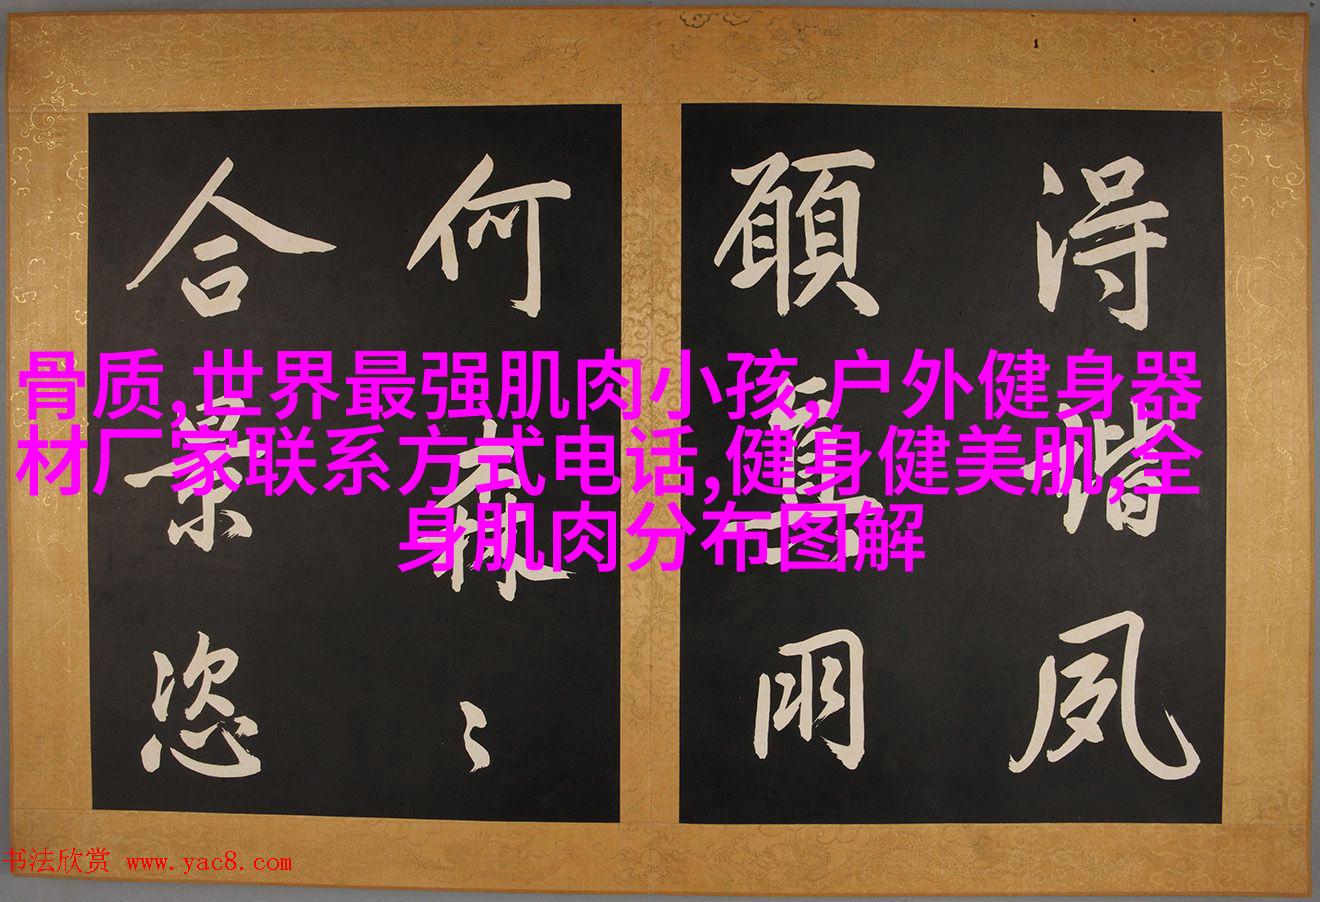 得諧夙
願
何森〻
合景恣
骨质,世界最强肌肉小孩,户外健身器
材厂家联系方式电话,健身健美肌,全
身肌肉分布图解
书法欣赏 www.yac8.com